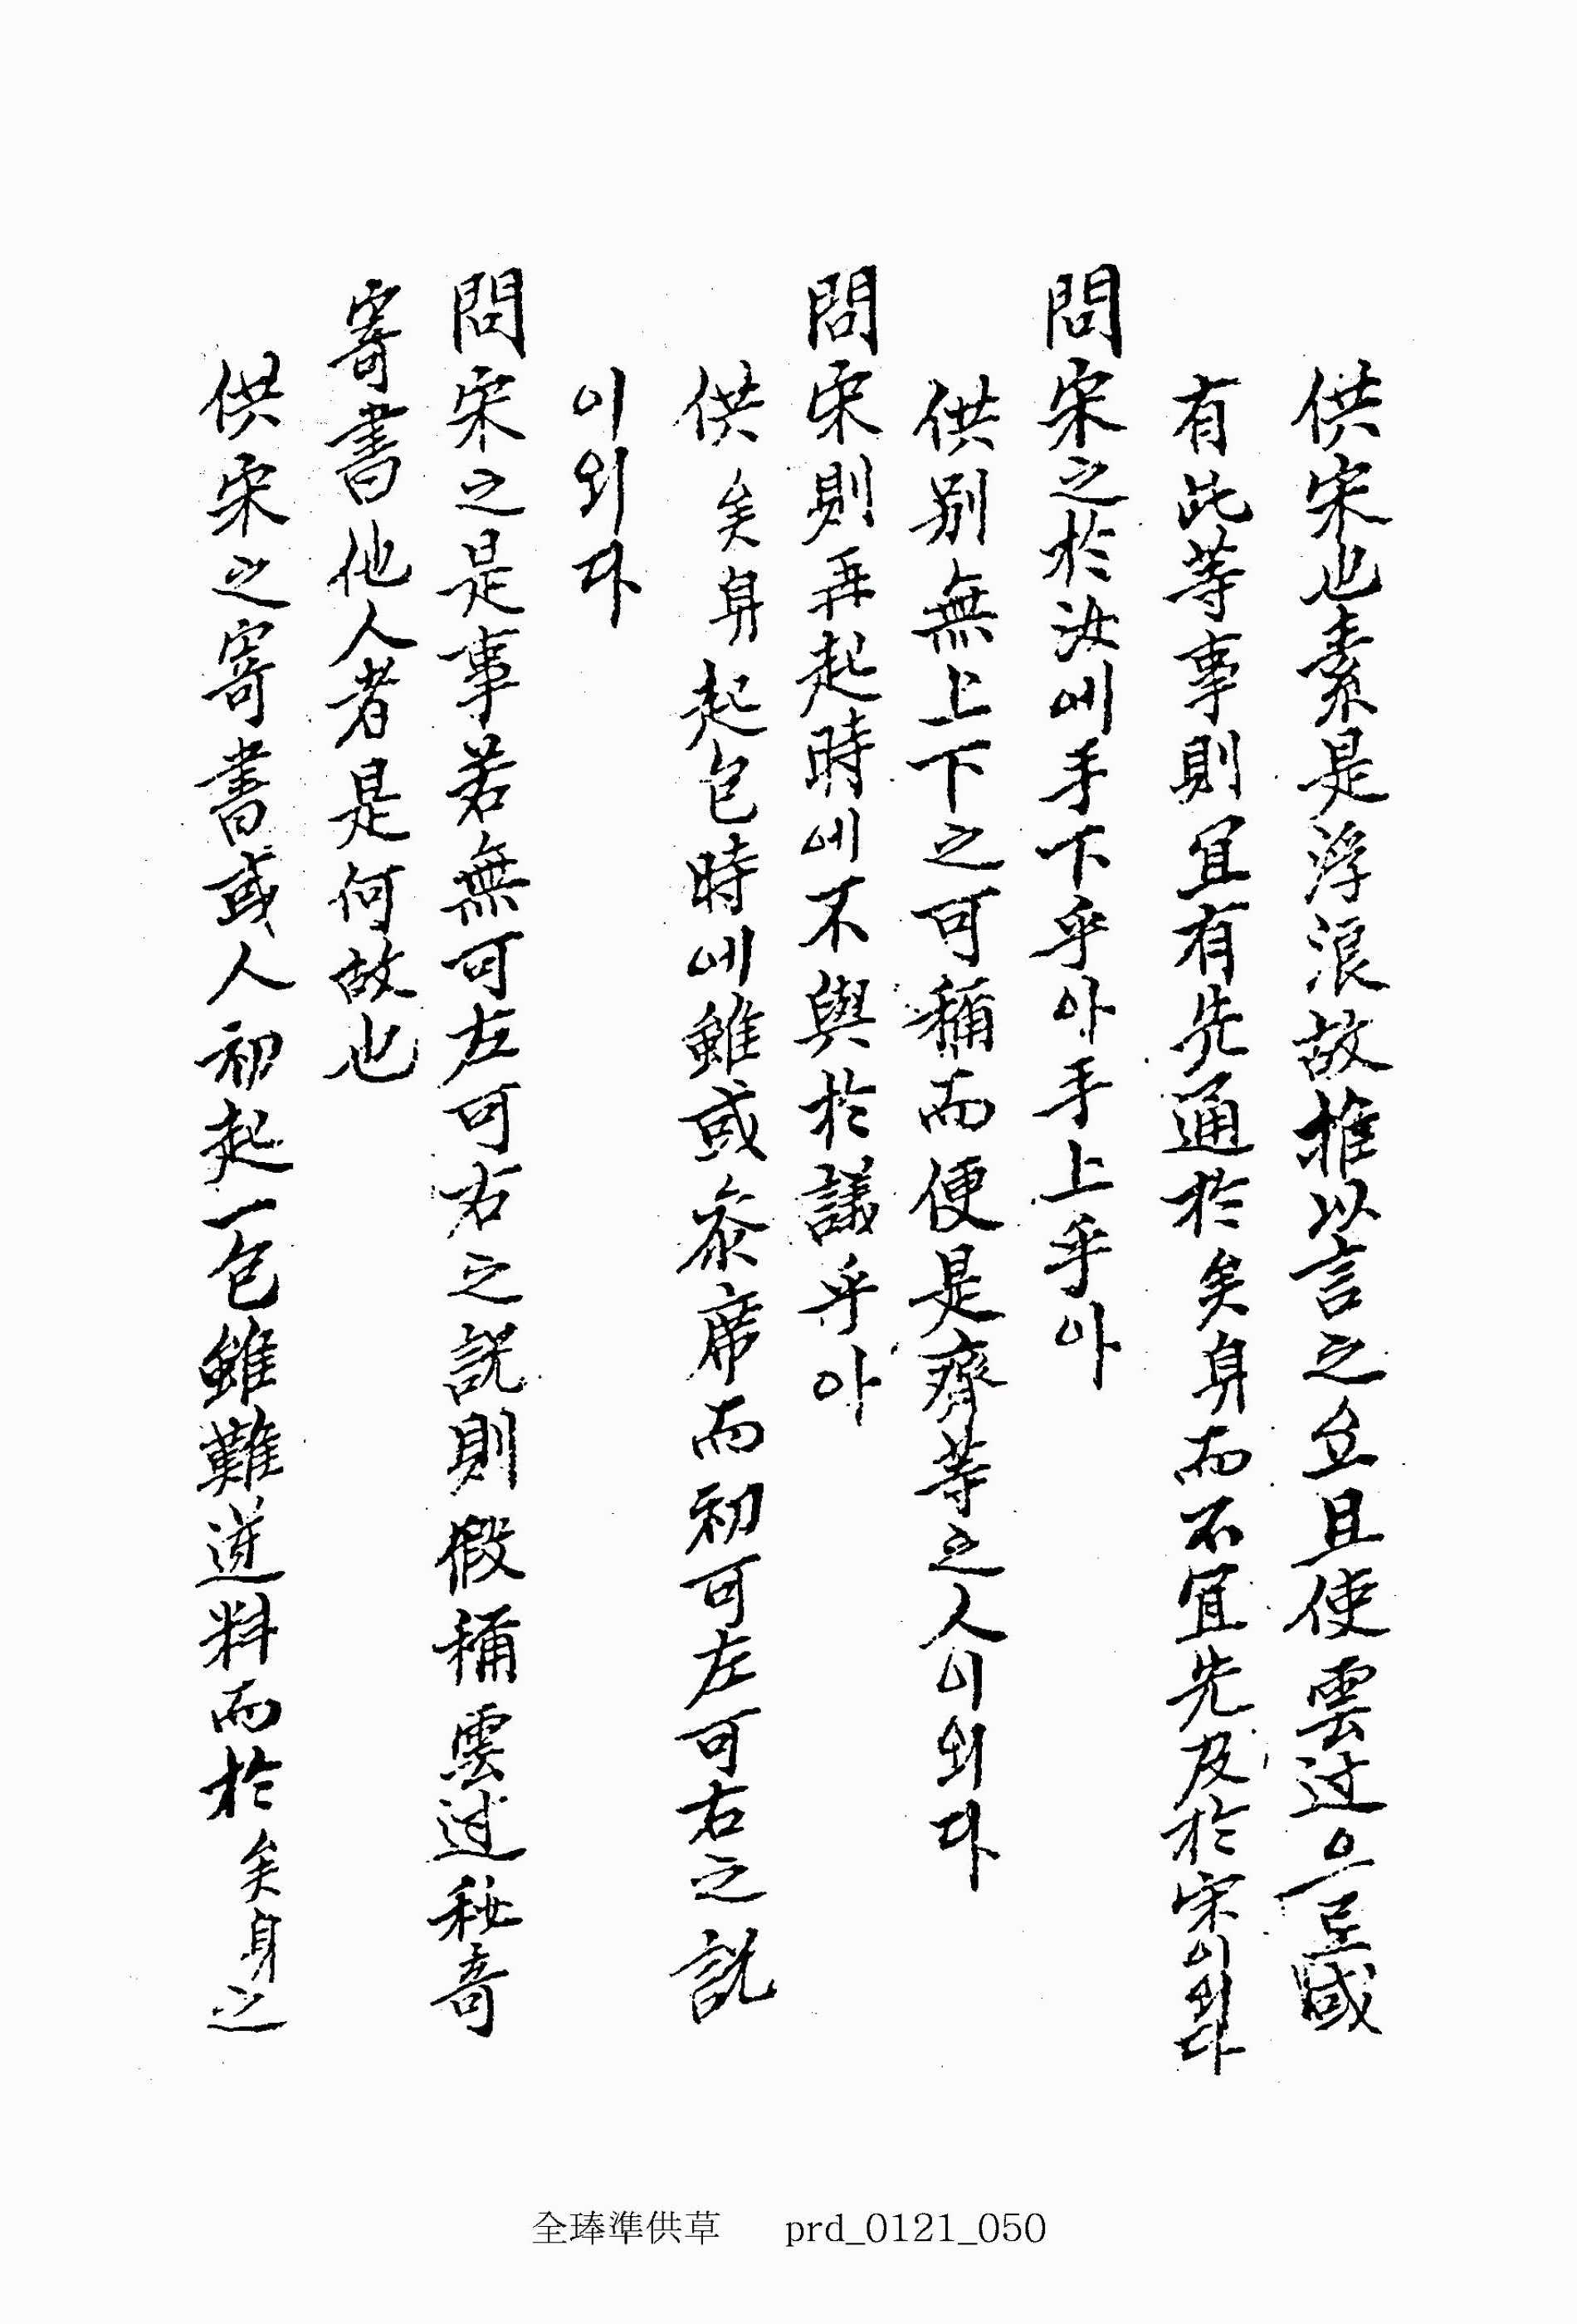 供宋也素是浮浪故推以言之且使雲过으로或
有此等事則宜有先通於矣身而不宜先及於宋이외다
問宋之於汝에手下乎아手上乎아
供別無上下之可稱而便是齊等之人이외다
問宋則再起時에不與於議乎아
供矣身起包時에雖或叅席而初可左可右之說
이외다
問宋之是事若無可左可右之說則假稱雲过秘奇
寄書他人者是何故也
供宋之寄書或人初起一包雖難逆料而於矣身之
全琫準供草 prd_0121_050